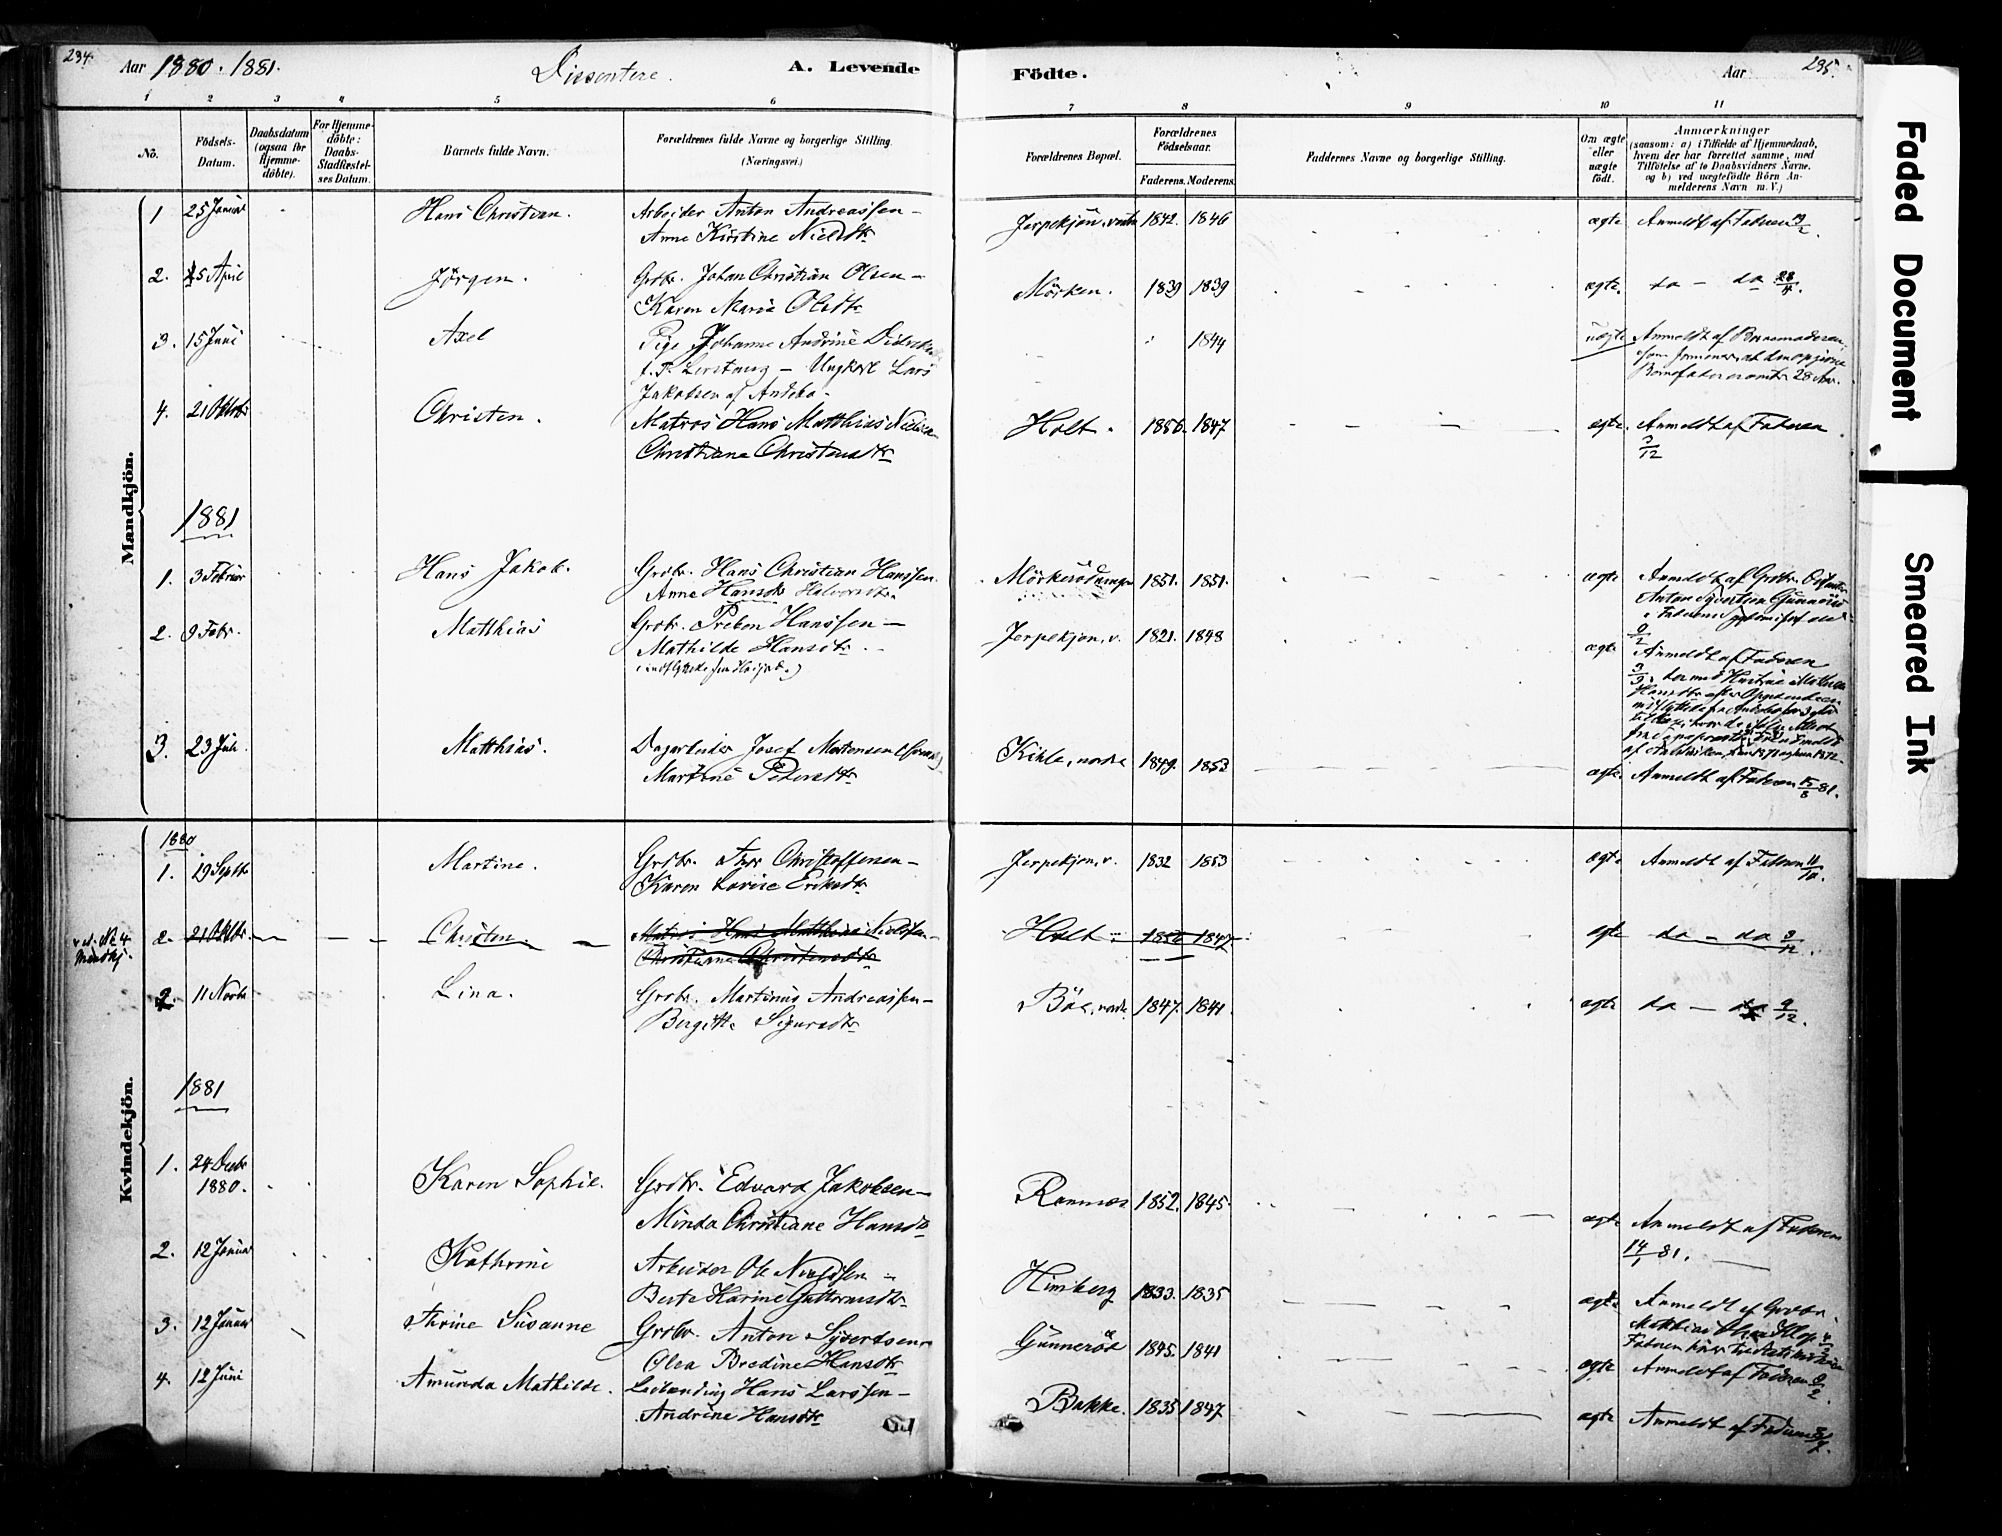 234.
Aar 1880. 1881.
Dissentere.
A. Levende
Födte.
Aar
235.
1 2 3 4 5 6 7 8 9 10 11
No.
Födsels-
Datum.
Daabsdatum
(ogsaa for
Hjemme-
döbte).
For Hjemme-
döbte:
Daabs-
Stadfæstel-
ses Datum.
Barnets fulde Navn.
Forældrenes fulde Navne og borgerlige Stilling.
(Næringsvei.)
Forældrenes Bopæl.
Forældrenes
Födselsaar.
Faderens. Moderens.
Faddernes Navne og borgerlige Stilling.
Om ægte
eller
uægte
födt.
Anmærkninger
(saasom: a) i Tilfælde af Hjemmedaab,
hvem der har forrettet samme, med
Tilföielse af to Daabsvidners Navne,
og b) ved uægtefödte Börn An-
melderens Navn m. V.)
Mandkjön.
1 25 Januar Hans Christian. Arbeider Anton Andreassen — Jerpekjön, vestre 1842. 1846 ægte Anmeldt af Faderen
Anne Kirstine Nielsdtr
2. 25 April Jörgen. Grbr. Johan Christian Olsen — Mörken. 1839 1839 ægte. do — do 28/4.
Karen Marie Olsdtr
3. 15 Juni Axel Pige Johanne Andrine 1844 uægte Anmeldt af Barnemoderen,
— Ungkarl Lars
Jakobsen af Andebo.
4. 21 Oktobr Christen. Matros Hans Matthias Nielsen Holt. 1856. 1847 ægte. Anmeldt af Faderen
Christiane Christensdtr 3/12
1881
1. 3 Februar Hans Jakob. Grbr. Hans Christian Hanssen. 1851. 1851. ægte Anmeldt af Grbr.
Anne Hansdtr Halvorsdtr. Anton Syvertsen Gunneröd
2. 9 Febr. Matthias Grbr. Preben Hanssen — Jerpekjön, v. 1821. 1848 ægte Anmeldt af Faderen
Mathilde Hansdtr. —
3. 23 Juli Matthias. Dagarbeider Josef Mortensen Kihle, nordre 1849. 1853 ægte. Anmeldt af Faderen 15/8 81.
Martine Pedersdtr
Kvindekjön.
1880
1. 19 Septbr Martine. Grbr. Thor Christoffersen — Jerpekjön, v. 1832 1853 ægte Anmeldt af Faderen 11/10.
Karen Lovise Eriksdtr
v. d. No 4
Mandkj.
2. 21 Oktbr. Christen. Matros Hans Matthias Nielsen — Holt 1856 1847 ægte do — do 3/12.
Christiane Christensdtr
2. 11 Novbr Lina. Grbr. Martinus Andreassen — Böe, nordre 1847. 1841 ægte do — do 9/12.
Bergitte Sigursdtr
1881
1. 24 Decbr
1880. Karen Sophie. Grbr. Edvard Jakobsen — Ramnæs 1852. 1845. ægte Anmeldt af Faderen
Minda Christiane Hansdtr 14/1 81.
2. 12 Januar Kathrine Arbeider Ole Nielssen — Himberg 1833. 1835 ægte Anmeldt af Grbr.
Berte Karine Guttormsdtr.
3. 12 Januar Thrine Susanne Grbr. Anton Syvertsen — Gunneröd 1845. 1841 ægte Anmeldt af Faderen 9/2
Olea Bredine Hansdtr
4. 12 Juni Amunda Mathilde. Leilænding Hans Larssen — Bakke. 1835 1847 ægte Anmeldt af Faderen
Andrine Hansdtr
Faded Document
Smeared Ink